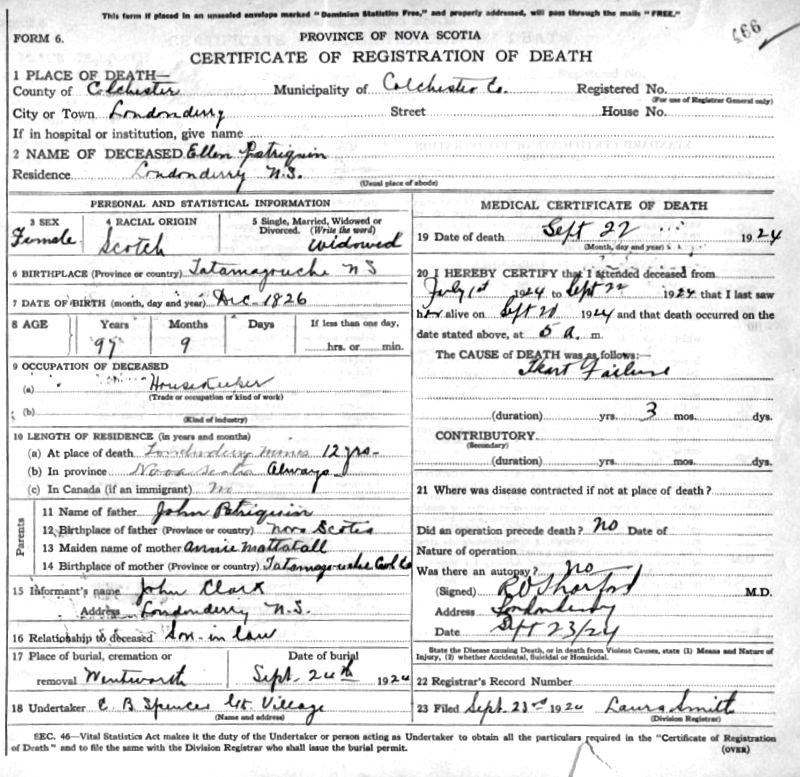 This form if placed in an unsealed envelope marked "Dominion Statistics Free," and properly addressed, will pass through the mails "FREE."
997
FORM 6.
PROVINCE OF NOVA SCOTIA
CERTIFICATE OF REGISTRATION OF DEATH
1 PLACE OF DEATH—
County of Colchester Municipality of Colchester Co. Registered No.
(For use of Registrar General only)
City or Town Londonderry Street House No.
If in hospital or institution, give name
2 NAME OF DECEASED Ellen Patriquin
Residence Londonderry N.S.
(Usual place of abode)
PERSONAL AND STATISTICAL INFORMATION
3 SEX 4 RACIAL ORIGIN 5 Single, Married, Widowed or Divorced. (Write the word)
Female Scotch widowed
6 BIRTHPLACE (Province or country) Tatamagouche N S
7 DATE OF BIRTH (month, day and year) Dec. 1826
8 AGE Years Months Days If less than one day,
97 9 hrs. or min.
9 OCCUPATION OF DECEASED
(a) Housekeeper
(Trade or occupation or kind of work)
(b)
(Kind of industry)
10 LENGTH OF RESIDENCE (in years and months)
(a) At place of death Londonderry Mines 12 yrs-
(b) In province Nova Scotia Always
(c) In Canada (if an immigrant)
Parents
11 Name of father John Patriquin
12 Birthplace of father (Province or country) Nova Scotia
13 Maiden name of mother Annie Mattatall
14 Birthplace of mother (Province or country) Tatamagouche Col Co
15 Informant's name John Clark
Address Londonderry N.S.
16 Relationship to deceased Son-in law
17 Place of burial, cremation or Date of burial
removal Wentworth Sept. 24th 1924
18 Undertaker C. B Spencer Gt. Village
(Name and address)
MEDICAL CERTIFICATE OF DEATH
19 Date of death Sept 22 1924
(Month, day and year)
20 I HEREBY CERTIFY that I attended deceased from
July 1st 1924 to Sept 22 1924 that I last saw
her alive on Sept 21 1924 and that death occurred on the
date stated above, at 5 a. m.
The CAUSE of DEATH was as follows:—
Heart Failure
(duration) yrs. 3 mos. dys.
CONTRIBUTORY
(Secondary)
(duration) yrs. mos. dys.
21 Where was disease contracted if not at place of death?
Did an operation precede death? no Date of
Nature of operation
Was there an autopsy? no
(Signed) M.D.
Address Londonderry
Date Sept 23/24
State the Disease causing Death, or in death from Violent Causes, state (1) Means and Nature of
Injury, (2) whether Accidental, Suicidal or Homicidal.
22 Registrar's Record Number
23 Filed Sept. 23rd 1924 Laura Smith
(Division Registrar)
SEC. 46—Vital Statistics Act makes it the duty of the Undertaker or person acting as Undertaker to obtain all the particulars required in the "Certificate of Registration
of Death" and to file the same with the Division Registrar who shall issue the burial permit.
(OVER)